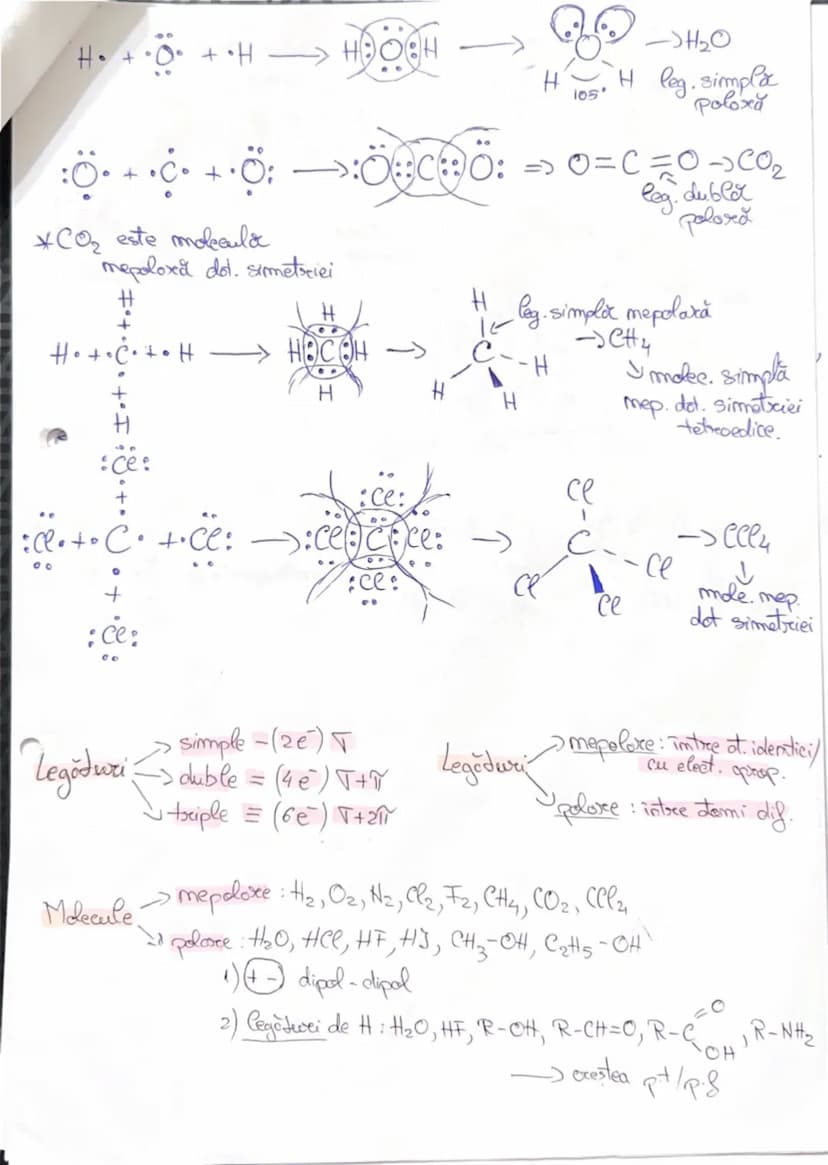 H· + ·Ö· + ·H → H:O:H → H 105° H → H2O
leg. simplă
polară
:Ö· + ·C· + ·Ö: → :Ö::C::Ö: ⇒ O=C=O → CO2
leg. dublă
polară
*CO2 este moleculă
nepolară dat. simetriei
H
+
H· + ·C· + ·H → H:C:H → C
+
H
H
H
H
H
H
H
leg. simplă nepolară
→ CH4
↘ molec. simplă
nep. dat. simetriei
tetraedice.
:Cl:
+
:Cl· + ·C· + ·Cl: → :Cl:C:Cl: → C → CCl4
+
:Cl:
:Cl:
:Cl:
Cl
Cl
Cl
Cl
↓
mole. nep.
dat simetriei
Legături
→ simple – (2e⁻) σ
→ duble = (4e⁻) σ+π
→ triple ≡ (6e⁻) σ+2π
Legături
→ nepolare : între at. identici/
cu elect. aprop.
→ polare : între atomi dif.
Molecule
→ nepolare : H2, O2, N2, Cl2, F2, CH4, CO2, CCl4
→ polare : H2O, HCl, HF, HI, CH3-OH, C2H5-OH
1) (+ -) dipol-dipol
2) legături de H : H2O, HF, R-OH, R-CH=O, R-C=O OH, R-NH2
→ crestea pt/p.f